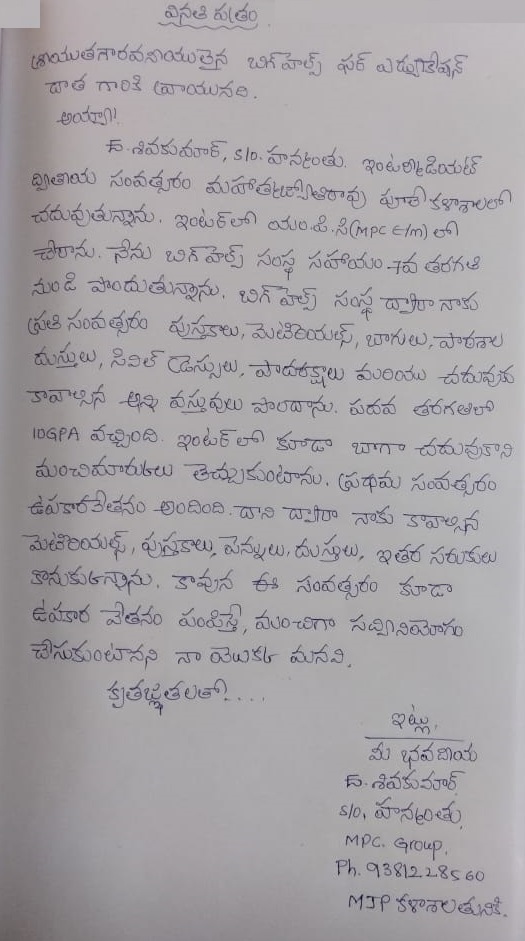 వినతి పత్రం.
శ్రీయుతగౌరవనీయులైన బిగ్ హెల్ప్ ఫర్ ఎడ్యుకేషన్
దాత గారికి వ్రాయునది.
అయ్యా!
డ. శివకుమార్, S/o. హన్మంతు. ఇంటర్మీడియట్
ద్వితీయ సంవత్సరం మహాత్మజ్యోతిరావు పూలే కళాశాలలో
చదువుతున్నాను. ఇంటర్ లో యం.పి.సి(MPC E/m) లో
చేరాను. నేను బిగ్ హెల్ప్ సంస్థ సహాయం 7వ తరగతి
నుండి పొందుతున్నాను. బిగ్ హెల్ప్ సంస్థ ద్వారా నాకు
ప్రతి సంవత్సరం పుస్తకాలు, మెటీరియల్స్, బ్యాగులు, పాఠశాల
దుస్తులు, సివిల్ డ్రెస్సులు, పాదరక్షలు మరియు చదువుకు
కావాల్సిన అన్ని వస్తువులు పొందాను. పదవ తరగతిలో
10GPA వచ్చింది. ఇంటర్ లో కూడా బాగా చదువుకొని
మంచిమార్కులు తెచ్చుకుంటాను. ప్రథమ సంవత్సరం
ఉపకారవేతనం అందింది. దాని ద్వారా నాకు కావాల్సిన
మెటీరియల్స్, పుస్తకాలు, పెన్నులు, దుస్తులు, ఇతర సరుకులు
కొనుకున్నాను. కావున ఈ సంవత్సరం కూడా
ఉపకార వేతనం పంపిస్తే, మంచిగా సద్వినియోగం
చేసుకుంటానని నా యొక్క మనవి.
కృతజ్ఞతలతో....
ఇట్లు,
మీ భవదీయ
డ. శివకుమార్
S/o, హన్మంతు,
MPC. Group,
Ph. 9381228560
MJP కళాశాల తునికి.